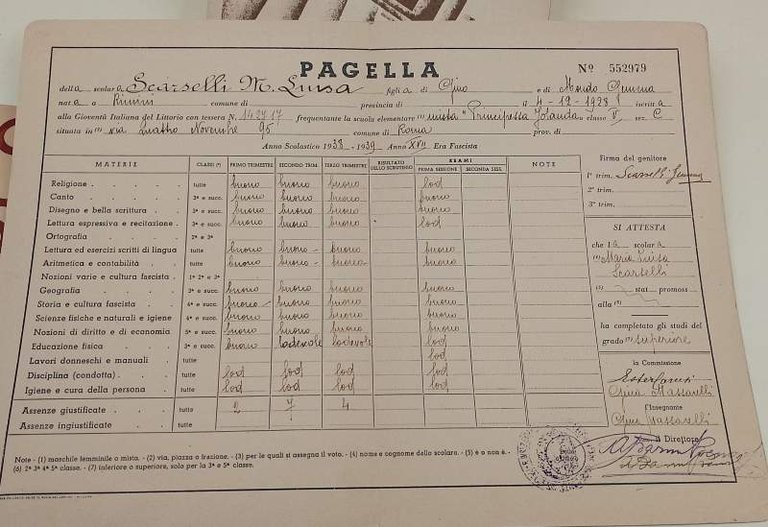 PAGELLA
Nº 552979
della scolara Scarselli M. Luisa figlia di Gino e di Mondo Gemma
nata a Rimini comune di provincia di il 4-12-1928 iscritta
alla Gioventù Italiana del Littorio con tessera N. 142717 frequentante la scuola elementare (1) mista "Principessa Jolanda" classe V sez. C
situata in (2) via Quattro Novembre 95 comune di Roma prov. di
Anno Scolastico 1938-1939 Anno XVII Era Fascista
MATERIE CLASSI (*) PRIMO TRIMESTRE SECONDO TRIM. TERZO TRIMESTRE RISULTATO DELLO SCRUTINIO ESAMI PRIMA SESSIONE SECONDA SESS. NOTE
Religione tutte buono buono buono lod
Canto 3ª e succ. buono buono buono buono
Disegno e bella scrittura 3ª e succ. buono buono buono buono
Lettura espressiva e recitazione 3ª e succ. buono buono buono lod
Ortografia 2ª e 3ª
Lettura ed esercizi scritti di lingua tutte buono buono buono buono
Aritmetica e contabilità tutte buono buono buono buono
Nozioni varie e cultura fascista 1ª 2ª e 3ª
Geografia 3ª e succ. buono buono buono buono
Storia e cultura fascista 4ª e succ. buono buono buono buono
Scienze fisiche e naturali e igiene 4ª e succ. buono buono buono buono
Nozioni di diritto e di economia 5ª e succ. buono buono buono buono
Educazione fisica 3ª e succ. buono lodevole lodevole lod
Lavori donneschi e manuali tutte lod
Disciplina (condotta) tutte lod lod lod lod
Igiene e cura della persona tutte lod lod lod lod
Assenze giustificate tutte 2 7 4
Assenze ingiustificate tutte
Firma del genitore
1° trim. Scarselli
2° trim.
3° trim.
SI ATTESTA
che la scolara
(4) Maria Luisa
Scarselli
(5) stat promoss
alla (6)
ha completato gli studi del
grado (7) superiore
la Commissione
Massarelli
l'Insegnante
Massarelli
il Direttore
Note - (1) maschile femminile o mista. - (2) via, piazza o frazione. - (3) per le quali si assegna il voto. - (4) nome e cognome dello scolaro. - (5) è o non è. -
(6) 2ª 3ª 4ª 5ª classe. - (7) inferiore o superiore, solo per la 3ª e 5ª classe.